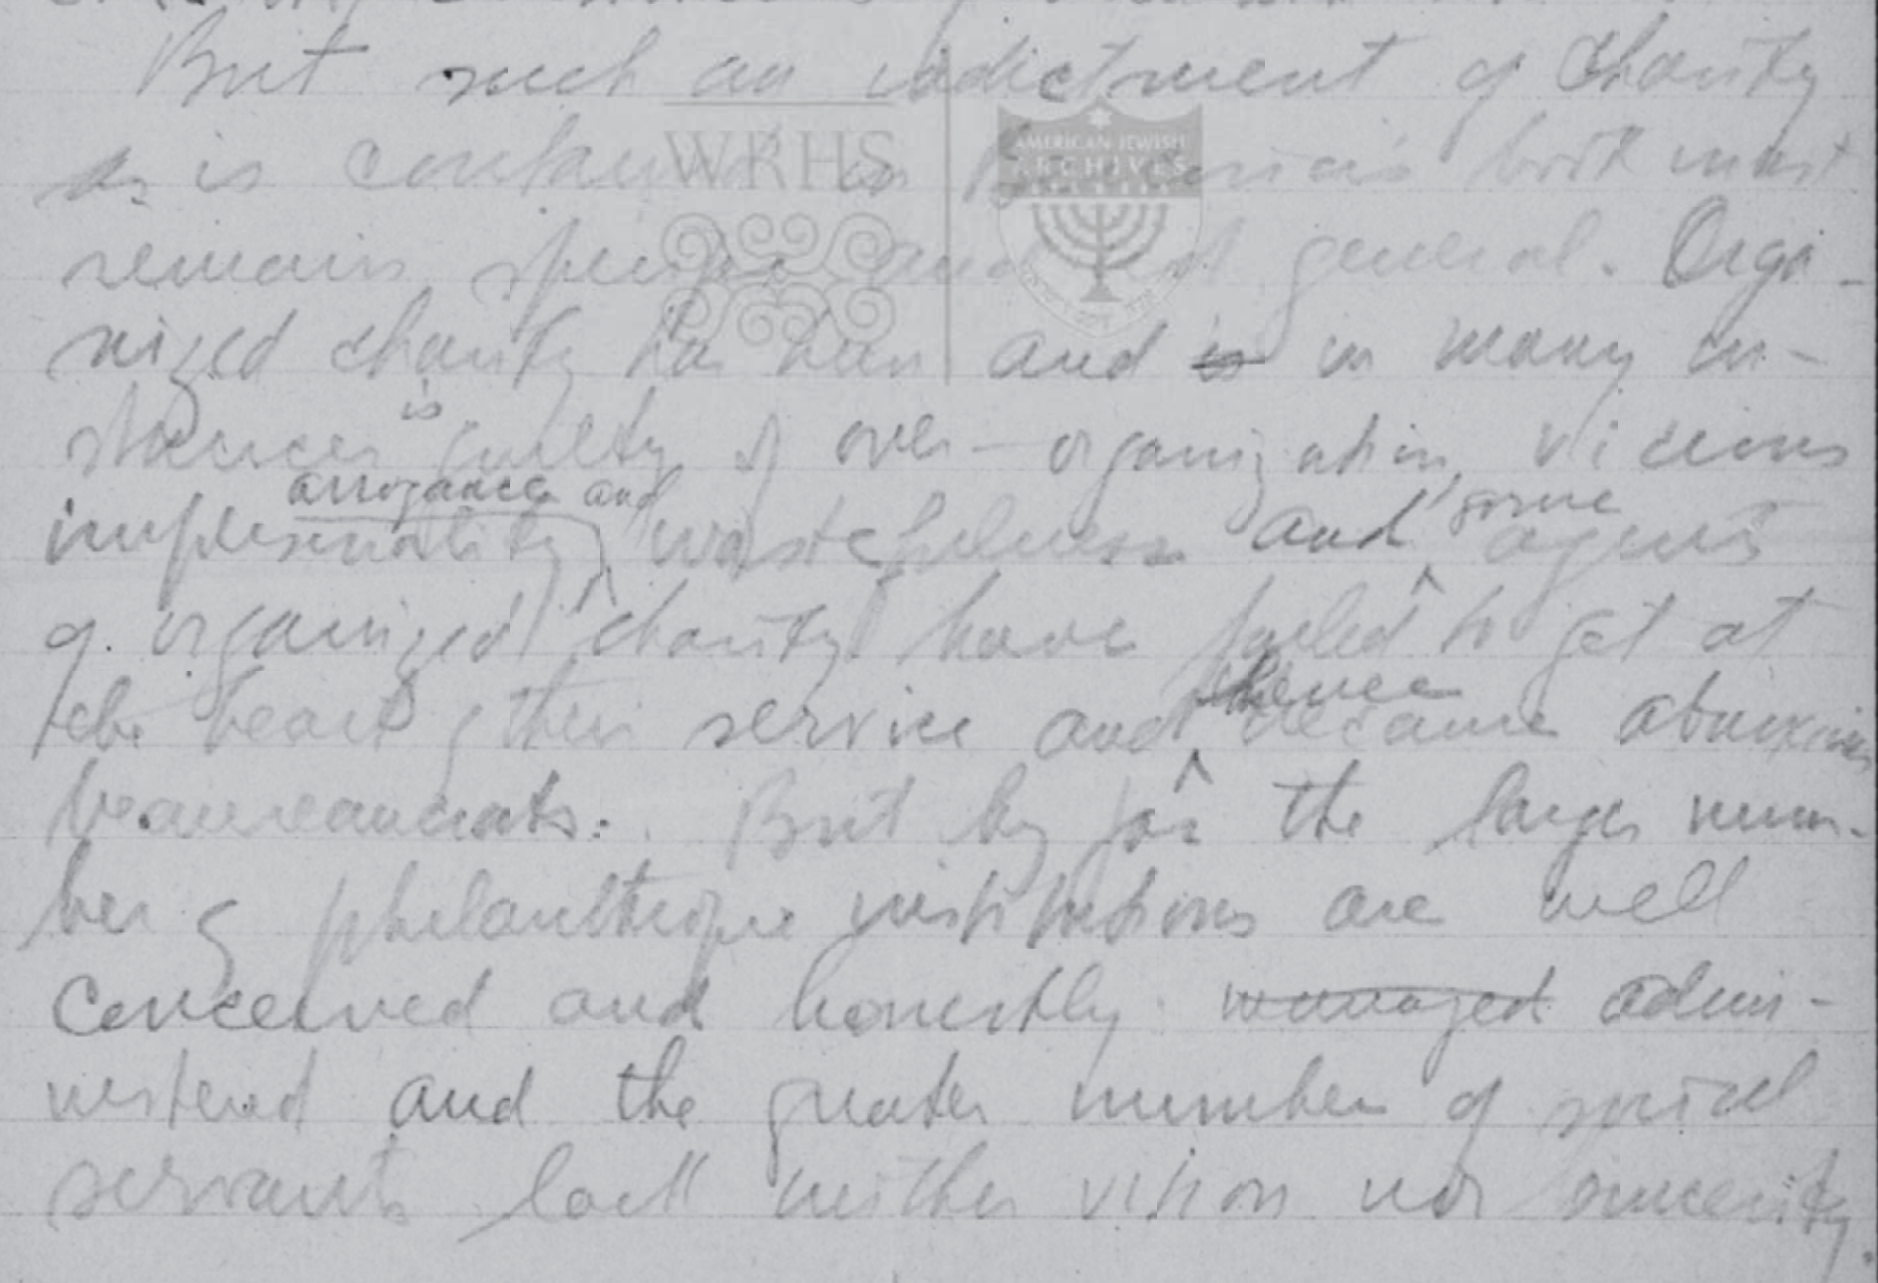 But such an indictment of Charity
as is contained in book must
remain specific and not general. Orga-
nized charity has been and is in many in-
stances is guilty of over-organization, vicious
impersonality, arrogance and wastefulness and some agents
of organized charity have failed to get at
the heart of their service and hence became obnoxious
beaureaucrats. But by far the larger num-
ber of philanthropic institutions are well
conceived and honestly managed admin-
istered and the greater number of social
servants lack neither vision nor sincerity.
WRHS
AMERICAN JEWISH
ARCHIVES